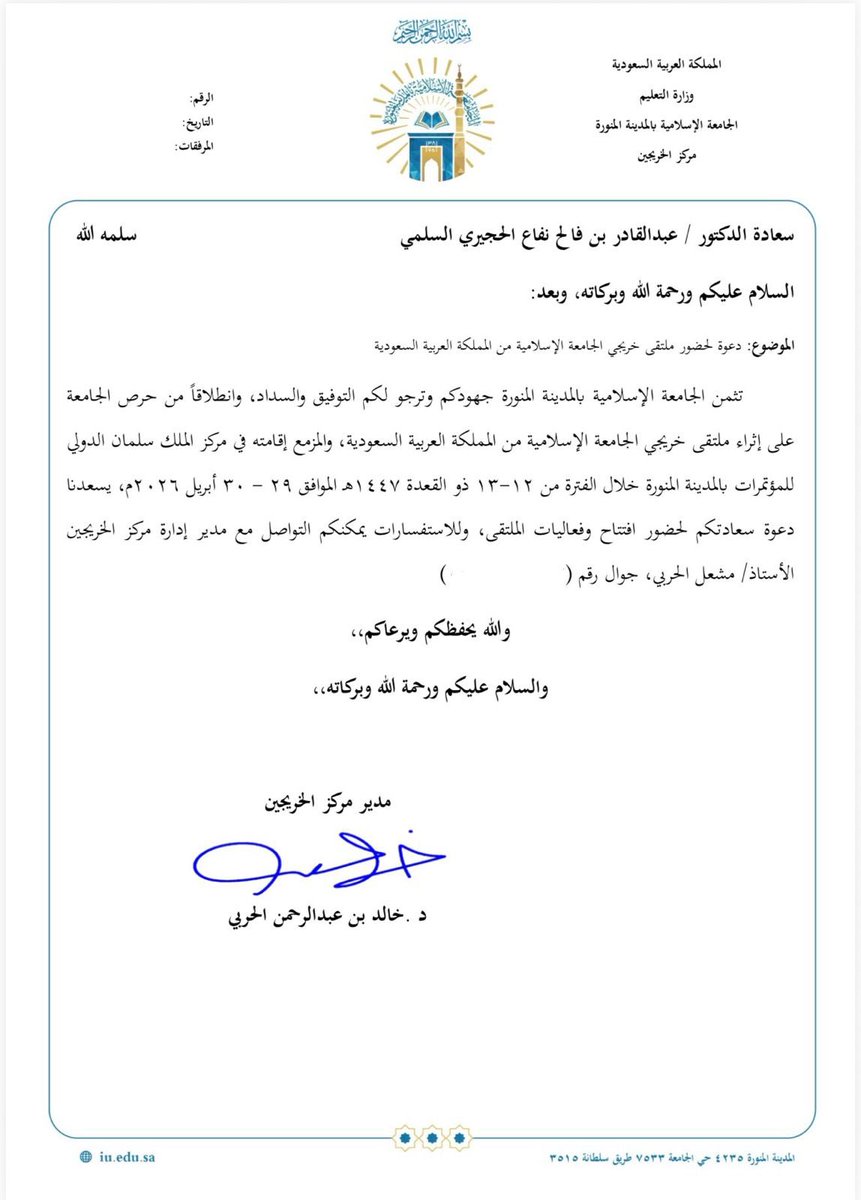 بسم الله الرحمن الرحيم
المملكة العربية السعودية
وزارة التعليم
الجامعة الإسلامية بالمدينة المنورة
مركز الخريجين
الرقم:
التاريخ:
المرفقات:
سعادة الدكتور / عبدالقادر بن فالح نفاع الحجيري السلمي سلمه الله
السلام عليكم ورحمة الله وبركاته، وبعد:
الموضوع: دعوة لحضور ملتقى خريجي الجامعة الإسلامية من المملكة العربية السعودية
تثمن الجامعة الإسلامية بالمدينة المنورة جهودكم وترجو لكم التوفيق والسداد، وانطلاقاً من حرص الجامعة
على إثراء ملتقى خريجي الجامعة الإسلامية من المملكة العربية السعودية، والمزمع إقامته في مركز الملك سلمان الدولي
للمؤتمرات بالمدينة المنورة خلال الفترة من ١٢-١٣ ذو القعدة ١٤٤٧هـ الموافق ٢٩ - ٣٠ أبريل ٢٠٢٦م، يسعدنا
دعوة سعادتكم لحضور افتتاح وفعاليات الملتقى، وللاستفسارات يمكنكم التواصل مع مدير إدارة مركز الخريجين
الأستاذ/ مشعل الحربي، جوال رقم ( )
والله يحفظكم ويرعاكم،،
والسلام عليكم ورحمة الله وبركاته،،
مدير مركز الخريجين
د .خالد بن عبدالرحمن الحربي
المدينة المنورة ٤٢٣٥ حي الجامعة ٧٥٣٣ طريق سلطانة ٣٥١٥
iu.edu.sa